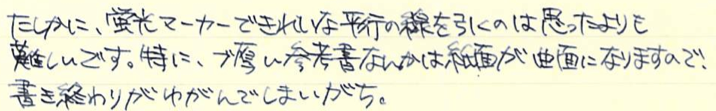 たしかに、蛍光マーカーできれいな平行の線を引くのは思ったよりも
難しいです。特に、ブ厚い参考書なんかは紙面が曲面になりますので、
書き終わりがゆがんでしまいがち。